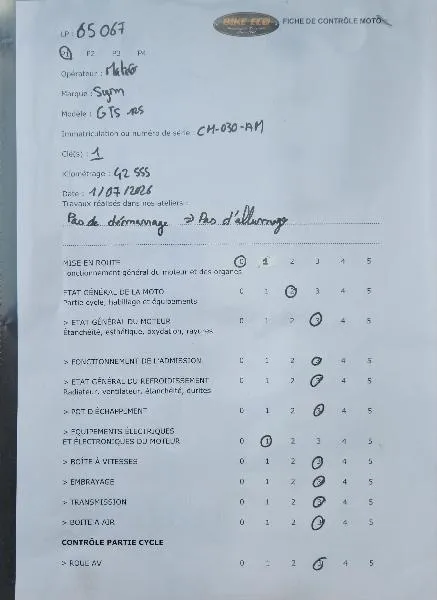 LP : 65 067
BIKE-ECO
FICHE DE CONTRÔLE MOTO
P1 P2 P3 P4
Opérateur :
Marque : Sym
Modèle : GTS 125
Immatriculation ou numéro de série : CM-030-AM
Clé(s) : 1
Kilométrage : 42 555
Date : 1/07/2026
Travaux réalisés dans nos ateliers :
Pas de démarrage => Pas d'allumage
MISE EN ROUTE 0 1 2 3 4 5
Fonctionnement général du moteur et des organes
ETAT GÉNÉRAL DE LA MOTO 0 1 2 3 4 5
Partie cycle, habillage et équipements
> ETAT GÉNÉRAL DU MOTEUR 0 1 2 3 4 5
Étanchéité, esthétique, oxydation, rayures
> FONCTIONNEMENT DE L'ADMISSION 0 1 2 3 4 5
> ETAT GÉNÉRAL DU REFROIDISSEMENT 0 1 2 3 4 5
Radiateur, ventilateur, étanchéité, durites
> POT D'ÉCHAPPEMENT 0 1 2 3 4 5
> EQUIPEMENTS ÉLECTRIQUES
ET ÉLECTRONIQUES DU MOTEUR 0 1 2 3 4 5
> BOÎTE À VITESSES 0 1 2 3 4 5
> EMBRAYAGE 0 1 2 3 4 5
> TRANSMISSION 0 1 2 3 4 5
> BOITE A AIR 0 1 2 3 4 5
CONTRÔLE PARTIE CYCLE
> ROUE AV 0 1 2 3 4 5